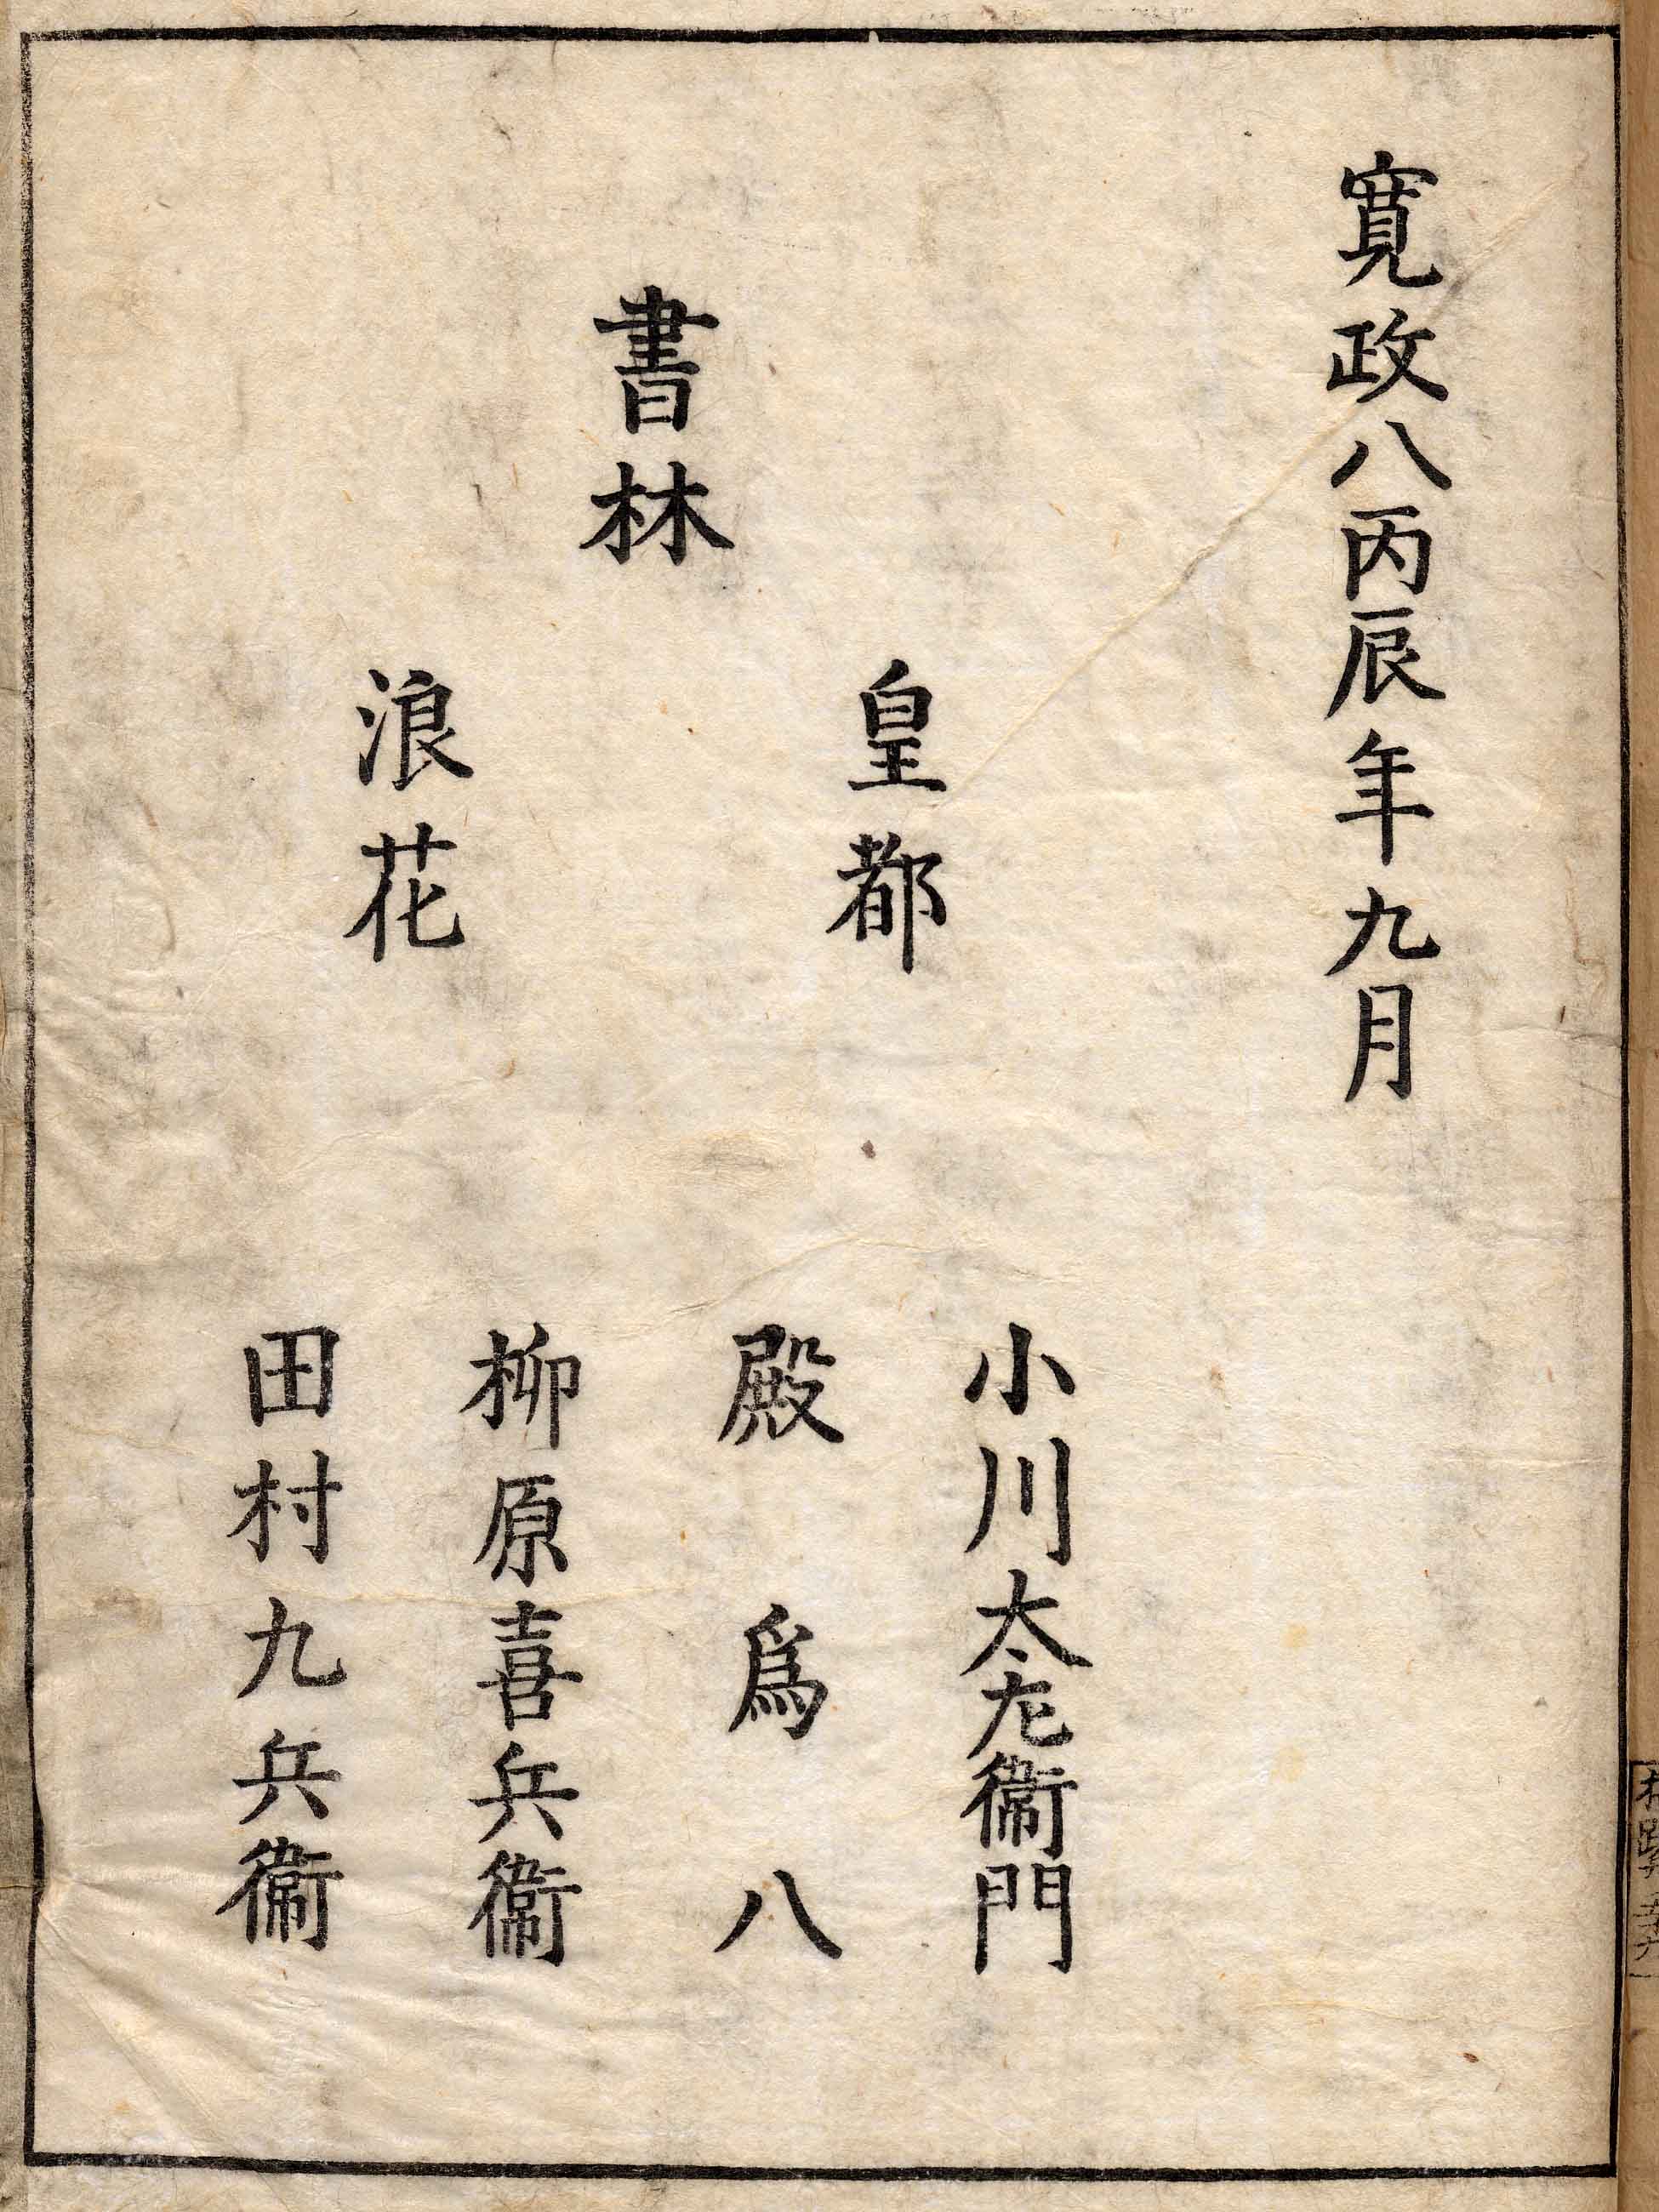 寛政八丙辰年九月
皇都
小川太左衞門
殿爲八
書林
浪花
柳原喜兵衞
田村九兵衞